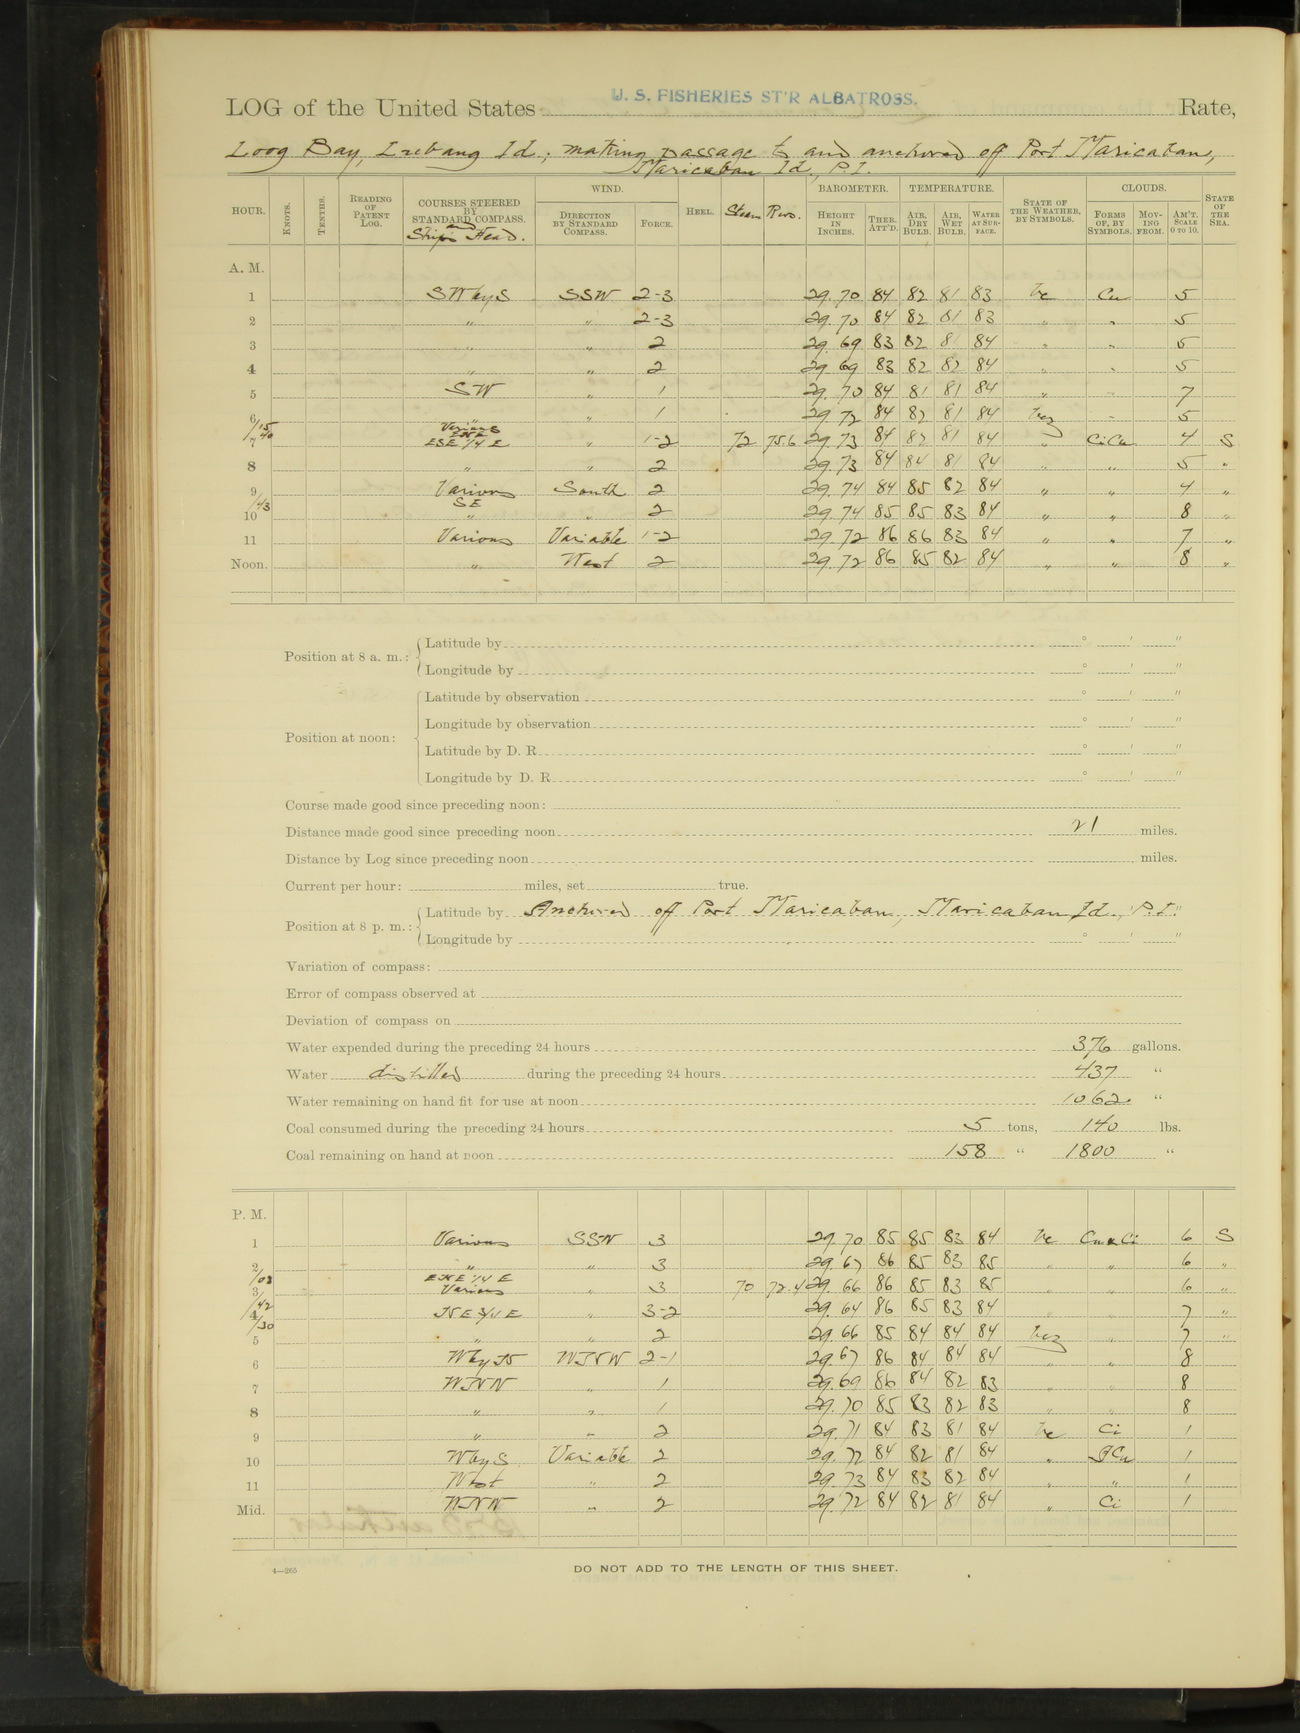 LOG of the United States U. S. FISHERIES ST'R ALBATROSS. Rate,
Loog Bay, Lubang Id., making passage to and anchored off Port Maricaban,
Maricaban Id., P.I.
HOUR. KNOTS. TENTHS. READING OF PATENT LOG. COURSES STEERED BY STANDARD COMPASS. and Ship's Head. WIND. DIRECTION BY STANDARD COMPASS. FORCE. HEEL. Steam Revs. BAROMETER. HEIGHT IN INCHES. THER. ATT'D. TEMPERATURE. AIR, DRY BULB. AIR, WET BULB. WATER AT SURFACE. STATE OF THE WEATHER, BY SYMBOLS. CLOUDS. FORMS OF, BY SYMBOLS. MOVING FROM. AM'T. SCALE 0 TO 10. STATE OF THE SEA.
A. M.
1 SW by S SSW 2-3 29.70 84 82 81 83 bc Cu 5
2 " " 2-3 29.70 84 82 81 83 " " 5
3 " " 2 29.69 83 82 81 84 " " 5
4 " " 2 29.69 83 82 82 84 " " 5
5 SW " 1 29.70 84 81 81 84 " " 7
6 " " 1 29.72 84 82 81 84 bcz " 5
/15 Various
/40 ENE
7 ESE 1/4 E " 1-2 72 75.6 29.73 84 82 81 84 " CiCu 4 S
8 " " 2 29.73 84 84 81 84 " " 5 "
9 Various South 2 29.74 84 85 82 84 " " 4 "
/43 SE
10 " " 2 29.74 85 85 83 84 " " 8 "
11 Various Variable 1-2 29.72 86 86 83 84 " " 7 "
Noon. " West 2 29.72 86 85 82 84 " " 8 "
Position at 8 a. m.: Latitude by ° ' "
Longitude by ° ' "
Position at noon: Latitude by observation ° ' "
Longitude by observation ° ' "
Latitude by D. R. ° ' "
Longitude by D. R. ° ' "
Course made good since preceding noon:
Distance made good since preceding noon 21 miles.
Distance by Log since preceding noon miles.
Current per hour: miles, set true.
Position at 8 p. m.: Latitude by Anchored off Port Maricaban, Maricaban Id., P.I.
Longitude by ° ' "
Variation of compass:
Error of compass observed at
Deviation of compass on
Water expended during the preceding 24 hours 376 gallons.
Water distilled during the preceding 24 hours 437 "
Water remaining on hand fit for use at noon 1062 "
Coal consumed during the preceding 24 hours 5 tons, 140 lbs.
Coal remaining on hand at noon 158 " 1800 "
P. M.
1 Various SSW 3 29.70 85 85 83 84 bc Cu & Ci 6 S
2 " " 3 29.67 86 85 83 85 " " 6 "
/03 ENE 1/4 E
3 Various " 3 70 72.4 29.66 86 85 83 85 " " 6 "
/42
4 NE 3/4 E " 3-2 29.64 86 85 83 84 " " 7 "
/30
5 " " 2 29.66 85 84 84 84 bcz " 7 "
6 W by N WNW 2-1 29.67 86 84 84 84 " " 8
7 WNW " 1 29.69 86 84 82 83 " " 8
8 " " 1 29.70 85 83 82 83 " " 8
9 " " 2 29.71 84 83 81 84 bc Ci 1
10 W by S Variable 2 29.72 84 82 81 84 " 1
11 West " 2 29.73 84 83 82 84 " " 1
Mid. WNW " 2 29.72 84 82 81 84 " Ci 1
4—265
DO NOT ADD TO THE LENGTH OF THIS SHEET.